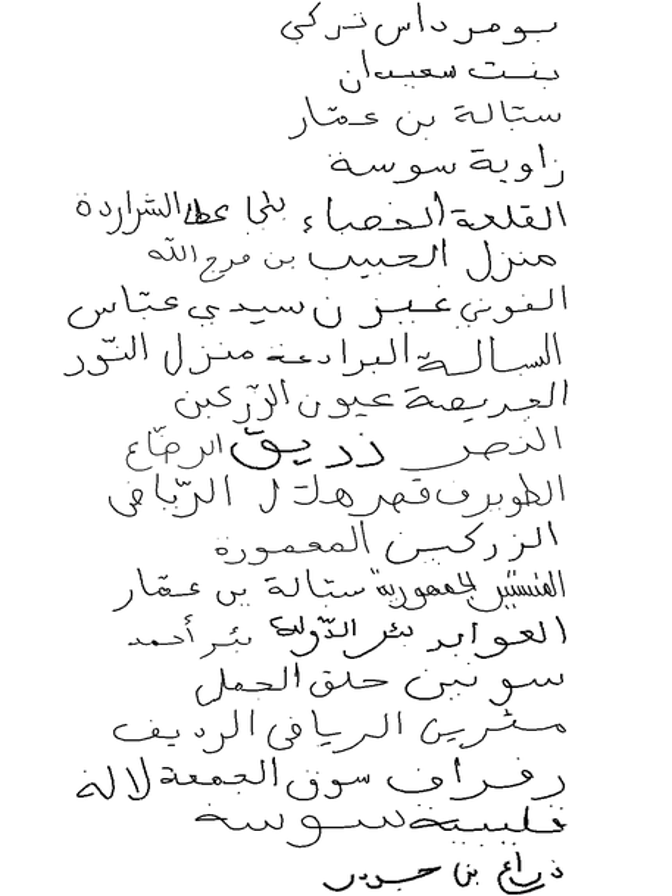 بومرداس تركي
بنت سعيدان
ستالة بن عمّار
زاوية سوسة
القلعة الخصباء بطحا عطا الشراردة
منزل الحبيب بن فرج الله
الفوني غيزن سيدي عبّاس
السالة البرادعة منزل النّور
العريصة عيون الزّركين
النصر زريق الرضّاع
الطويرف قصر هلال الرّياض
الزركين المعمورة
المنستير الجمهورية ستالة بن عمّار
العوابد بئر الدّولة بئر أحمد
سونين حلق الجمل
مشرين الرياض الرديف
رفراف سوق الجمعة لالة
قليبية سوسة
ذراع بن جودر